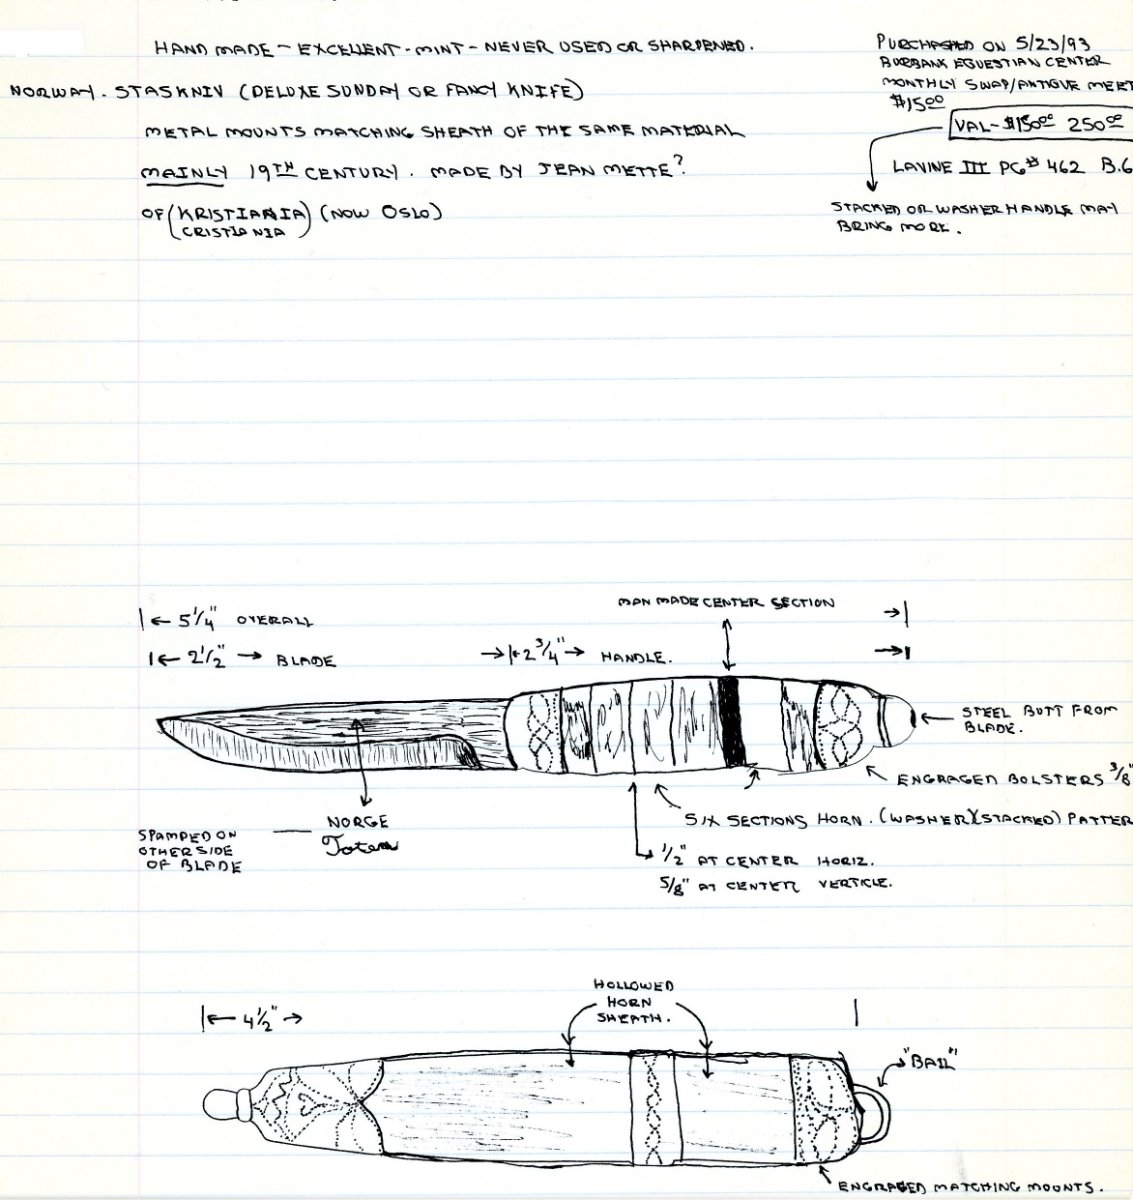 HAND MADE - EXCELLENT - MINT - NEVER USED OR SHARPENED.
NORWAY. STASKNIV (DELUXE SUNDAY OR FANCY KNIFE)
METAL MOUNTS MATCHING SHEATH OF THE SAME MATERIAL
MAINLY 19TH CENTURY. MADE BY JEAN METTE?
OF (KRISTIANIA) (NOW OSLO)
CRISTIANIA
PURCHASED ON 5/23/93
BURBANK EQUESTIAN CENTER
MONTHLY SWAP/ANTIQUE MEET
$15.00
VAL- $150.00 250.00
LAVINE III PG# 462 B.6
STACKED OR WASHER HANDLE MAY
BRING MORE.
MAN MADE CENTER SECTION
5 1/4" OVERALL
2 1/2" BLADE
2 3/4" HANDLE.
STEEL BUTT FROM
BLADE.
ENGRAGED BOLSTERS 3/8"
SIX SECTIONS HORN. (WASHER)(STACKED) PATTER
NORGE
SPAMPED ON
OTHER SIDE
OF BLADE
1/2" AT CENTER HORIZ.
5/8" AT CENTER VERTICLE.
HOLLOWED
HORN
SHEATH.
4 1/2"
"BAIL"
ENGRAGED MATCHING MOUNTS.